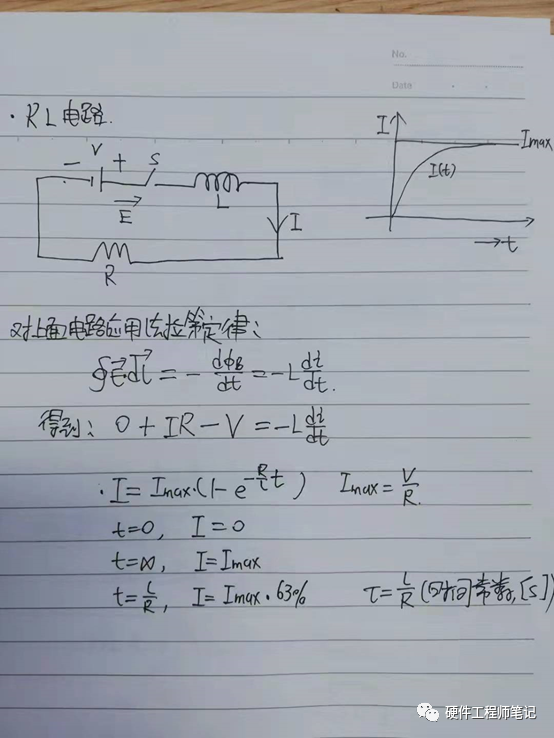 No.
Date
· RL电路.
- V + S
E
L
I
R
I
Imax
I(t)
→t
对上面电路应用法拉第定律:
∮E⃗·dl⃗ = - dφB/dt = -L di/dt.
得到: 0 + IR - V = -L di/dt
· I = Imax·(1- e^(-R/L t)) Imax = V/R.
t=0, I=0
t=∞, I=Imax
t=L/R, I=Imax·63% τ=L/R (时间常数, [s])
硬件工程师笔记